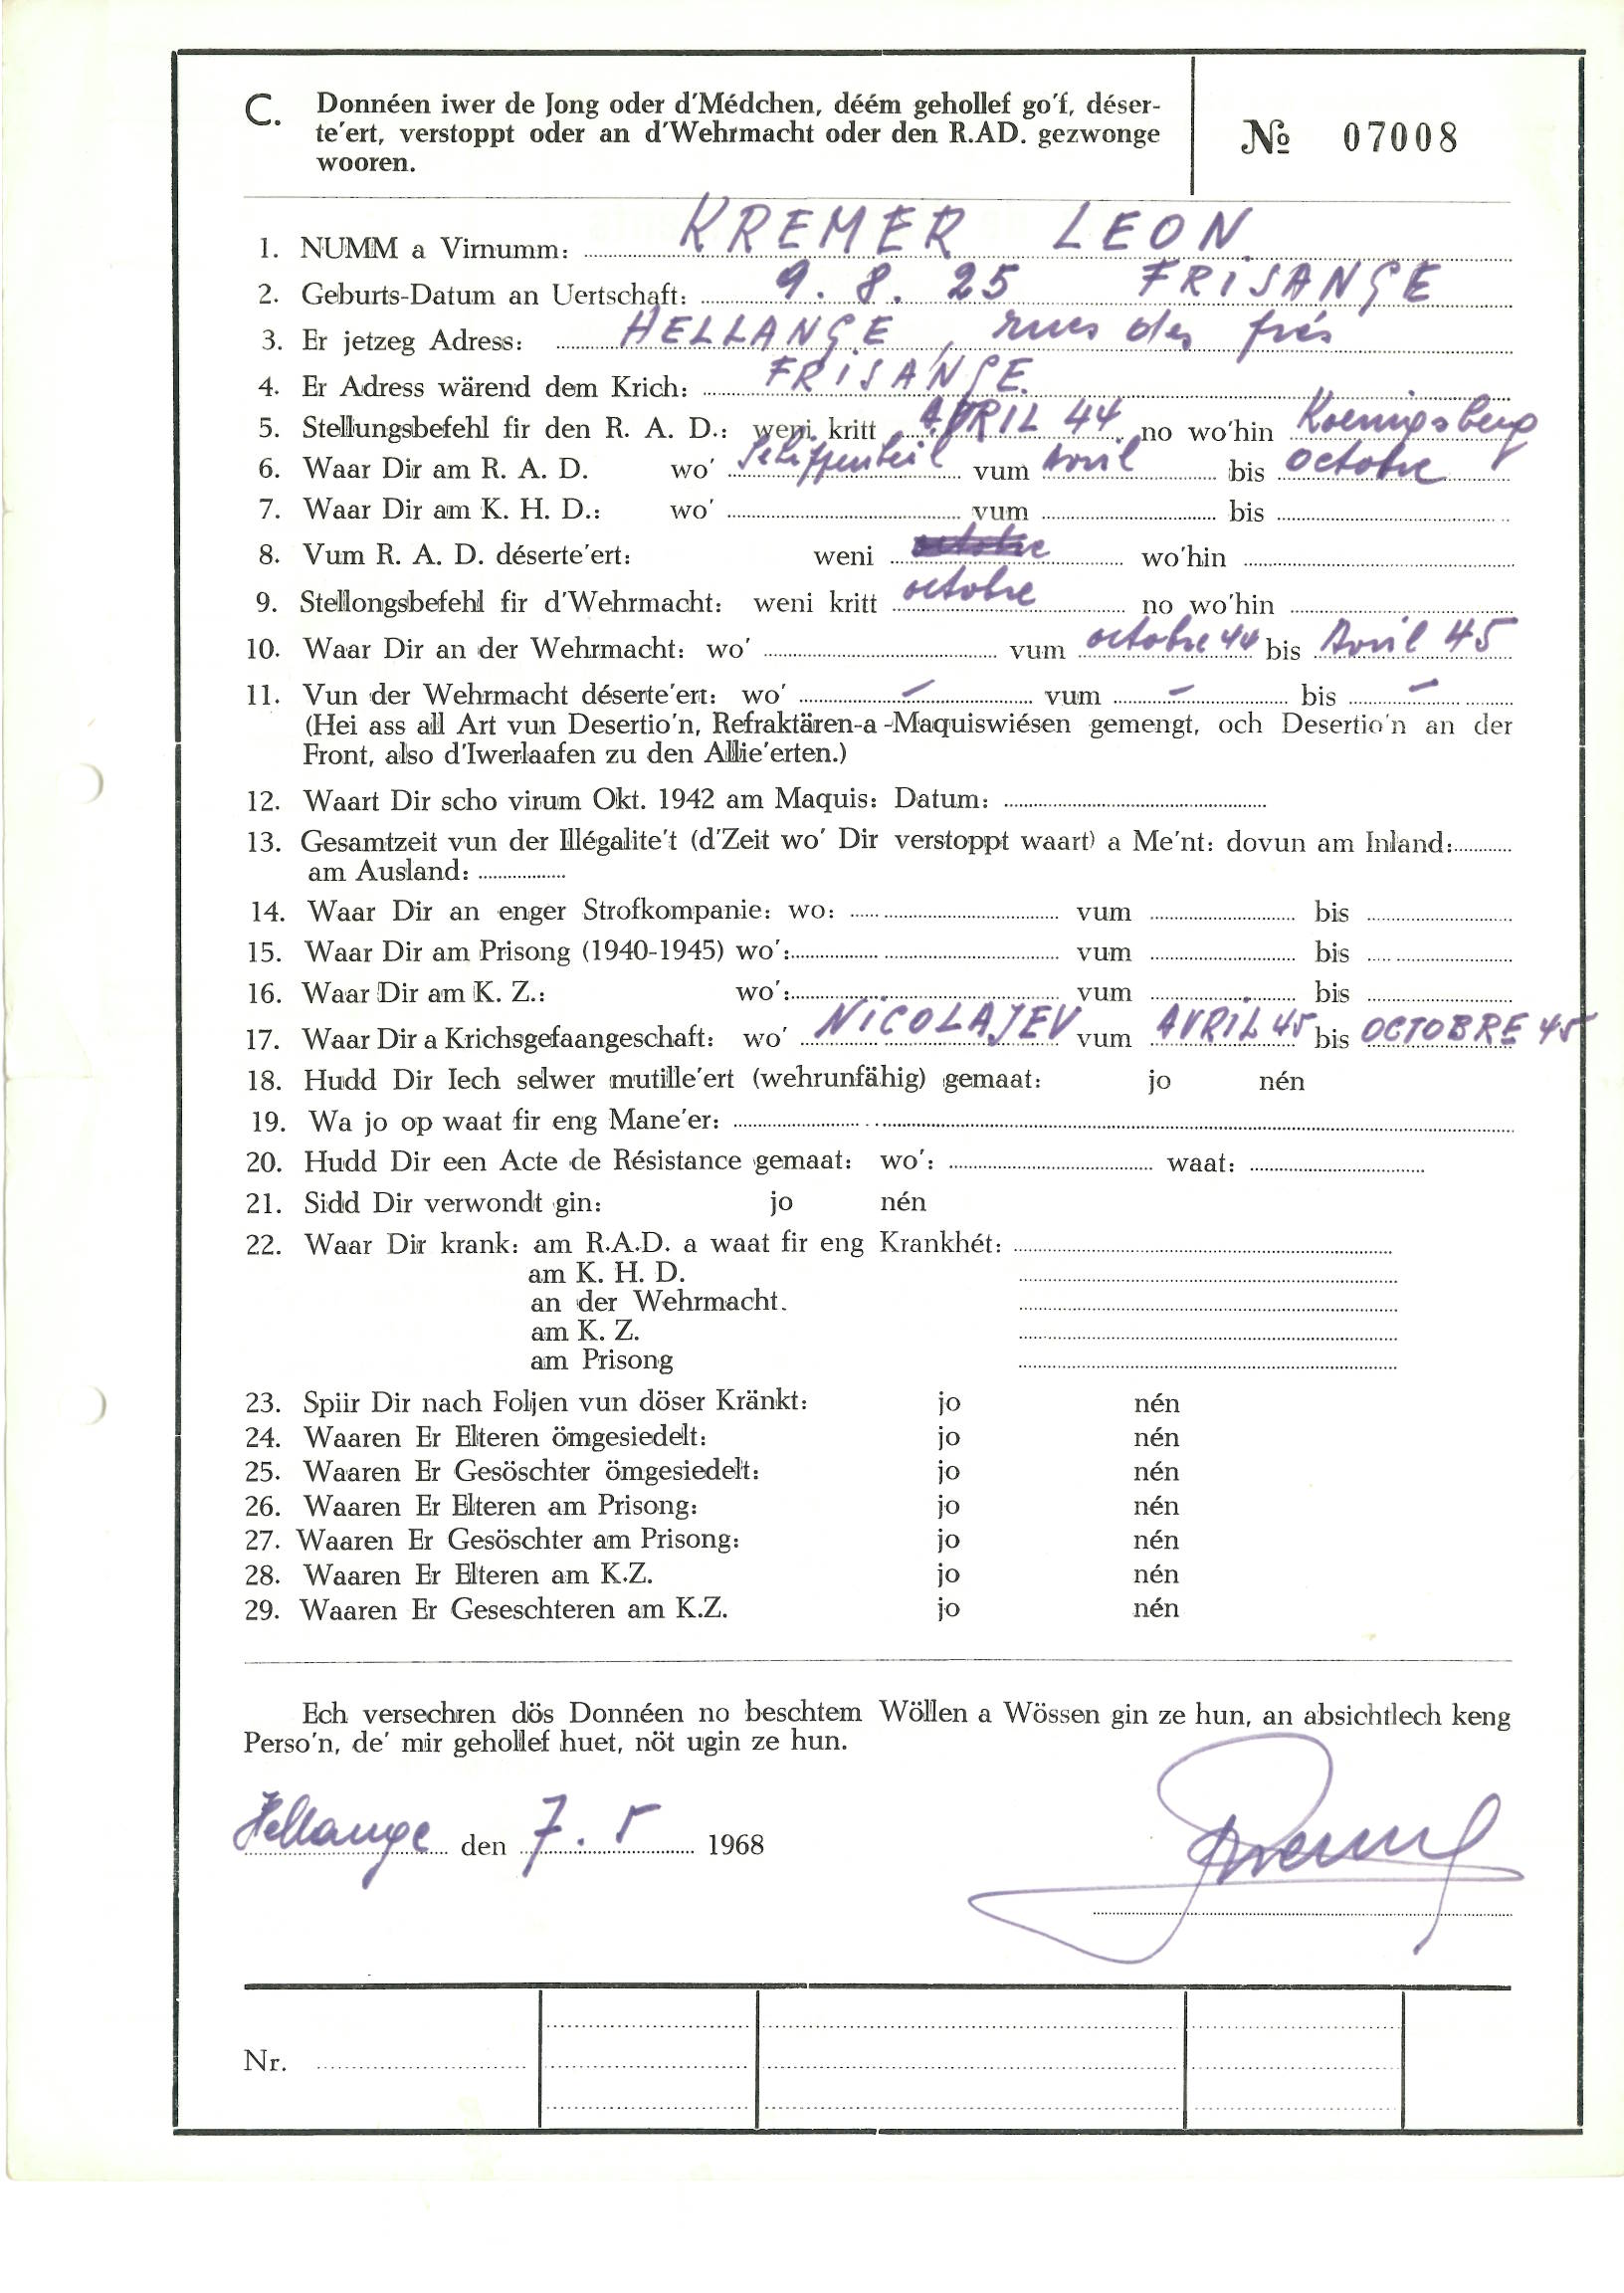 C. Donnéen iwer de Jong oder d'Médchen, déém gehollef go'f, déser-
te'ert, verstoppt oder an d'Wehrmacht oder den R.AD. gezwonge
wooren.
№ 07008
1. NUMM a Virnumm: KREMER LEON
2. Geburts-Datum an Uertschaft: 9. 8. 25 FRISANGE
3. Er jetzeg Adress: HELLANGE, rues des prés
4. Er Adress wärend dem Krich: FRISANGE
5. Stellungsbefehl fir den R. A. D.: weni kritt AVRIL 44 no wo'hin Koenigsberg
6. Waar Dir am R. A. D. wo' Schippenbeil vum Avril bis octobre
7. Waar Dir am K. H. D.: wo' vum bis
8. Vum R. A. D. déserte'ert: weni octobre wo'hin
9. Stellongsbefehl fir d'Wehrmacht: weni kritt octobre no wo'hin
10. Waar Dir an der Wehrmacht: wo' vum octobre 44 bis Avril 45
11. Vun der Wehrmacht déserte'ert: wo' - vum - bis -
(Hei ass all Art vun Desertio'n, Refraktären-a-Maquiswiésen gemengt, och Desertio'n an der
Front, also d'Iwerlaafen zu den Allie'erten.)
12. Waart Dir scho virum Okt. 1942 am Maquis: Datum:
13. Gesamtzeit vun der Illégalite't (d'Zeit wo' Dir verstoppt waart) a Me'nt: dovun am Inland:
am Ausland:
14. Waar Dir an enger Strofkompanie: wo: vum bis
15. Waar Dir am Prisong (1940-1945) wo': vum bis
16. Waar Dir am K. Z.: wo': vum bis
17. Waar Dir a Krichsgefaangeschaft: wo' NICOLAJEV vum AVRIL 45 bis OCTOBRE 45
18. Hudd Dir Iech selwer mutille'ert (wehrunfähig) gemaat: jo nén
19. Wa jo op waat fir eng Mane'er:
20. Hudd Dir een Acte de Résistance gemaat: wo': waat:
21. Sidd Dir verwondt gin: jo nén
22. Waar Dir krank: am R.A.D. a waat fir eng Krankhét:
am K. H. D.
an der Wehrmacht.
am K. Z.
am Prisong
23. Spiir Dir nach Foljen vun döser Kränkt: jo nén
24. Waaren Er Elteren ömgesiedelt: jo nén
25. Waaren Er Gesöschter ömgesiedelt: jo nén
26. Waaren Er Elteren am Prisong: jo nén
27. Waaren Er Gesöschter am Prisong: jo nén
28. Waaren Er Elteren am K.Z. jo nén
29. Waaren Er Geseschteren am K.Z. jo nén
Ech versechren dös Donnéen no beschtem Wöllen a Wössen gin ze hun, an absichtlech keng
Perso'n, de' mir gehollef huet, nöt ugin ze hun.
Hellange den 7. 5 1968
Kremer
Nr.